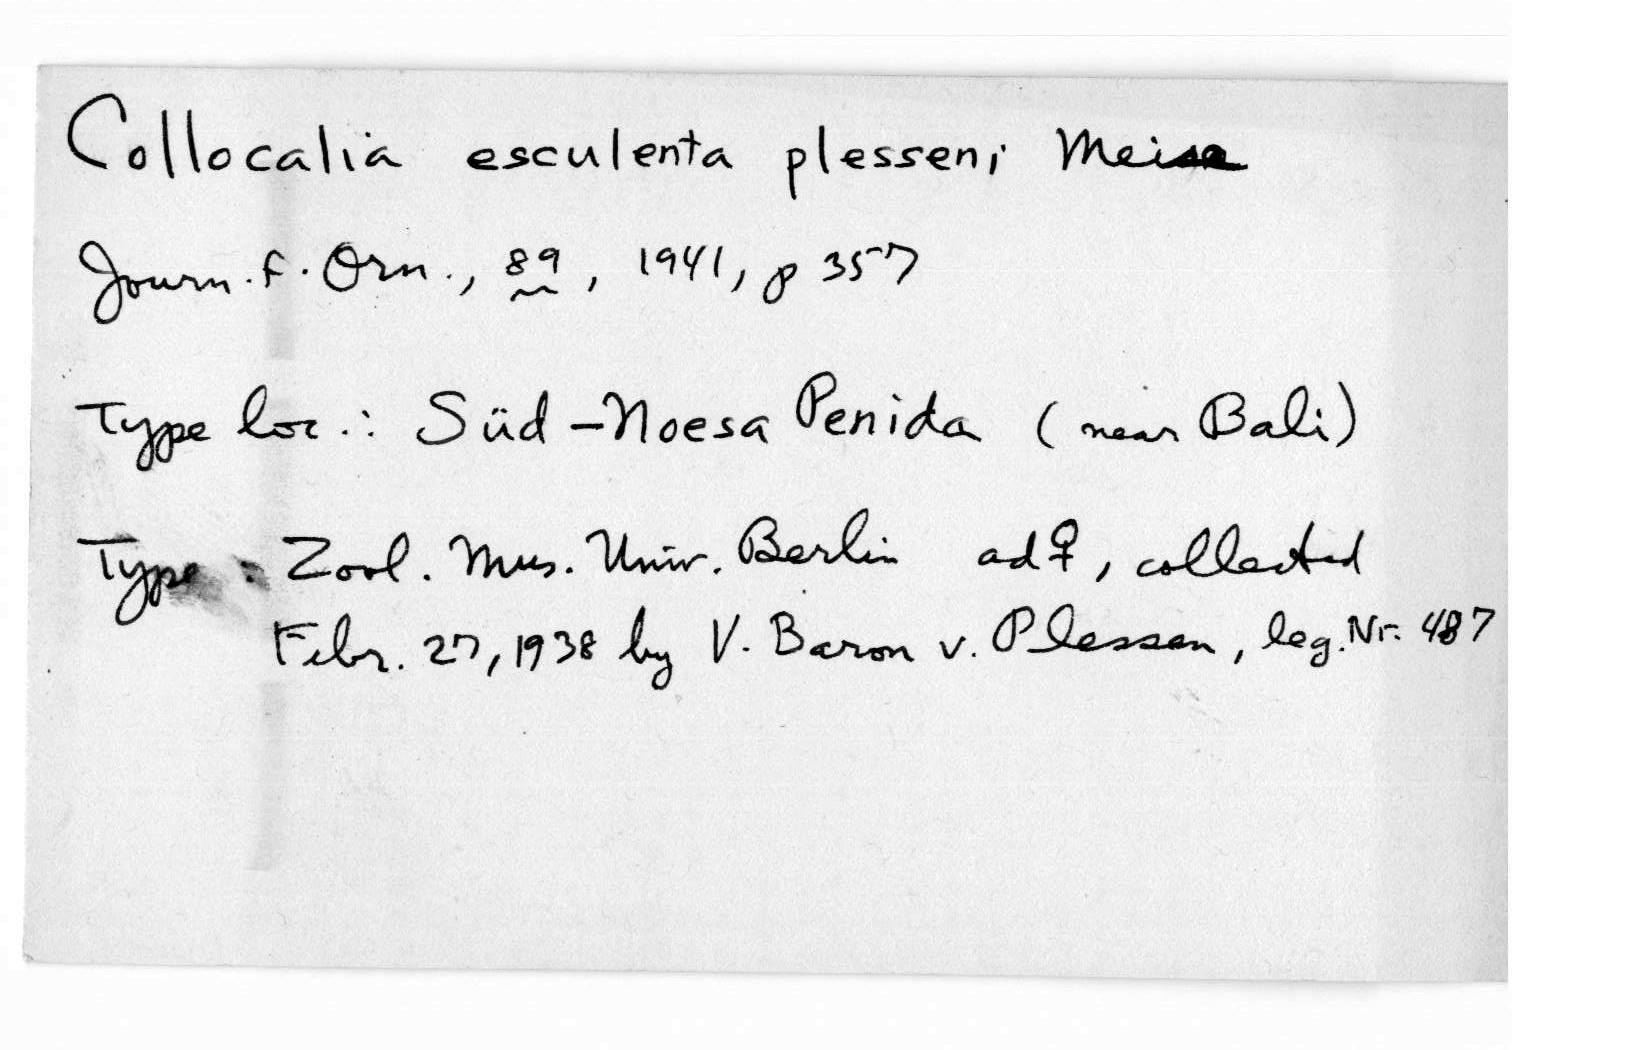 Collocalia esculenta plesseni Meise
Journ. f. Orn., 89, 1941, p 357
Type loc.: Süd-Noesa Penida (near Bali)
Type: Zool. Mus. Univ. Berlin ad ♀, collected
Febr. 27, 1938 by V. Baron v. Plessen, leg. Nr. 487